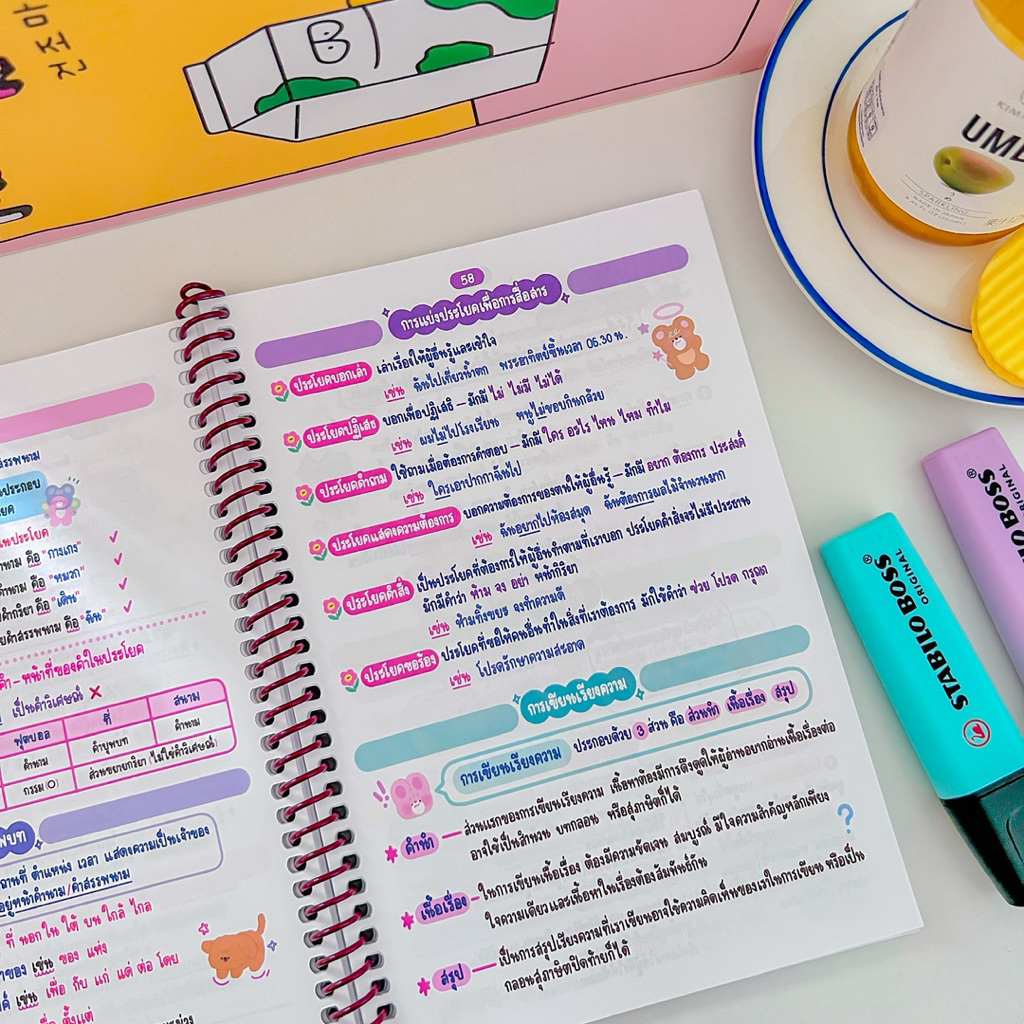 진조하
B
UME
SPARKLING
MADE IN JAPAN
58
การแบ่งประโยคเพื่อการสื่อสาร
ประโยคบอกเล่า เล่าเรื่องให้ผู้อื่นรู้และเข้าใจ
เช่น ฉันไปเที่ยวน้ำตก พระอาทิตย์ขึ้นเวลา 06.30 น.
ประโยคปฏิเสธ บอกเพื่อปฏิเสธ – มักมี ไม่ ไม่มี ไม่ได้
เช่น ผมไม่ไปโรงเรียน หนูไม่ชอบกินกล้วย
ประโยคคำถาม ใช้ถามเมื่อต้องการคำตอบ – มักมี ใคร อะไร ไหน ไหม ทำไม
เช่น ใครเอาปากกาฉันไป
ประโยคแสดงความต้องการ บอกความต้องการของตนให้ผู้อื่นรู้ – มักมี อยาก ต้องการ ประสงค์
เช่น ฉันอยากไปห้องสมุด ฉันต้องการผลไม้จำนวนมาก
ประโยคคำสั่ง เป็นประโยคที่ต้องการให้ผู้อื่นทำตามที่เราบอก ประโยคคำสั่งจะไม่มีประธาน
มักมีคำว่า ห้าม จง อย่า หน้ากิริยา
เช่น ห้ามทิ้งขยะ จงทำความดี
ประโยคขอร้อง ประโยคที่ขอให้คนอื่นทำในสิ่งที่เราต้องการ มักใช้คำว่า ช่วย โปรด กรุณา
เช่น โปรดรักษาความสะอาด
การเขียนเรียงความ
การเขียนเรียงความ ประกอบด้วย 3 ส่วน คือ ส่วนนำ เนื้อเรื่อง สรุป
คำนำ – ส่วนแรกของการเขียนเรียงความ เนื้อหาต้องมีการดึงดูดให้ผู้อ่านอยากอ่านเนื้อเรื่องต่อ
อาจใช้เป็นสำนวน บทกลอน หรือสุภาษิตก็ได้
เนื้อเรื่อง – ในการเขียนเนื้อเรื่อง ต้องมีความชัดเจน สมบูรณ์ มีใจความสำคัญหลักเพียง
ใจความเดียวและเนื้อหาในเรื่องต้องสัมพันธ์กัน
สรุป – เป็นการสรุปเรียงความที่เราเขียนอาจใช้ความคิดเห็นของเราในการเขียน หรือเป็น
กลอนสุภาษิตปิดท้ายก็ได้
?
สรรพนาม
ประกอบ
นประโยค
นาม คือ "กางเกง"
คำนาม คือ "หมวก"
คำกริยา คือ "เดิน"
คำสรรพนาม คือ "ฉัน"
คำ - หน้าที่ของคำในประโยค
เป็นคำวิเศษณ์ ✗
ฟุตบอล ที่ สนาม
คำนาม คำบุพบท คำนาม
กรรม (O) ส่วนขยายกริยา (ไม่ใช่คำวิเศษณ์)
พบท
ถานที่ ตำแหน่ง เวลา แสดงความเป็นเจ้าของ
อยู่หน้าคำนาม/คำสรรพนาม
ที่ นอก ใน ใต้ บน ใกล้ ไกล
าของ เช่น ของ แห่ง
เช่น เพื่อ กับ แก่ แด่ ต่อ โดย
ตั้งแต่
STABILO BOSS®
ORIGINAL
BOSS®
ORIGINAL